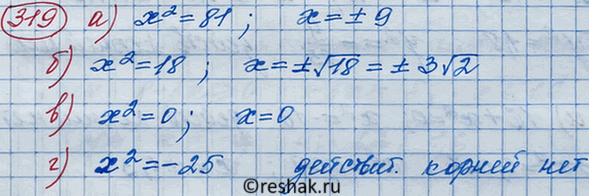 319 а) x² = 81; x = ± 9
б) x² = 18; x = ±√18 = ± 3√2
в) x² = 0; x = 0
г) x² = -25 действит. корней нет
©reshak.ru